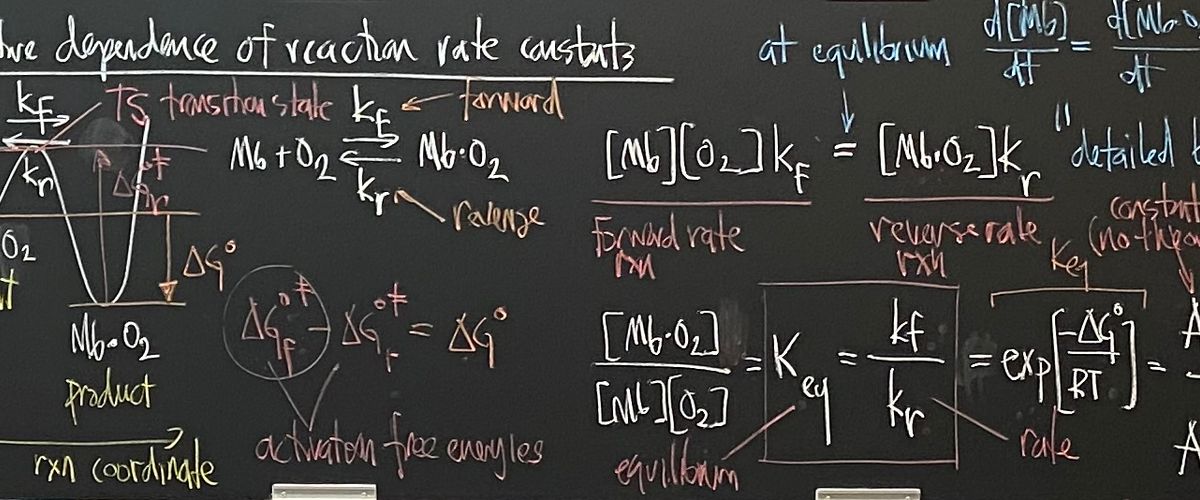 dependence of reaction rate constants
kf
kr
TS transition state
Mb + O₂ ⇌ Mb·O₂
kf ← forward
kr
ΔG°
O₂
Mb·O₂
product
rxn coordinate
ΔG°‡f - ΔG°‡r = ΔG°
activation free energies
at equilibrium d[Mb]/dt =
[Mb][O₂]kf = [Mb·O₂]kr
"detailed
forward rate
rxn
reverse rate
rxn
Keq
[Mb·O₂]/[Mb][O₂] = Keq = kf/kr = exp[-ΔG°/RT] =
equilibrium
rate